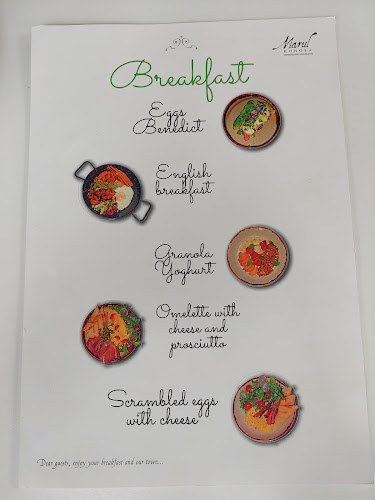 Marul
KONOBA
Breakfast
Eggs
Benedict
English
breakfast
Granola
Yoghurt
Omelette with
cheese and
prosciutto
Scrambled eggs
with cheese
Dear guests, enjoy your breakfast and our town...